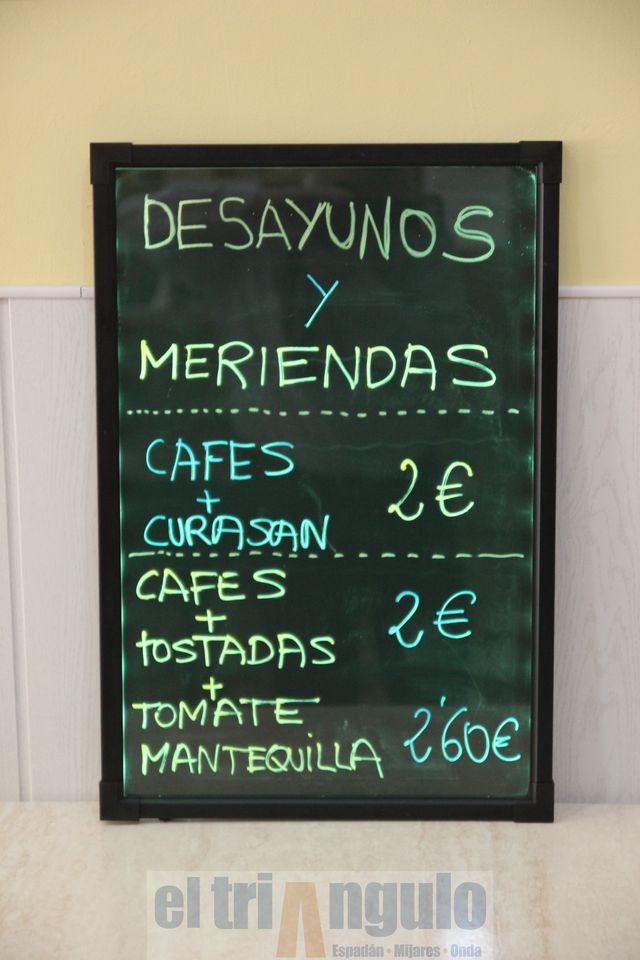 DESAYUNOS
Y
MERIENDAS
CAFES
+
CURASAN
2€
CAFES
+
tOSTADAS
2€
+
TOMATE
MANTEQUILLA
2'60€
el triángulo
Espadán · Mijares · Onda